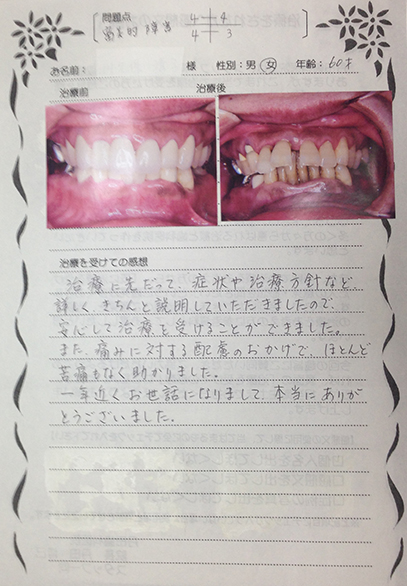 問題点
審美的障害
4 4
4 3
お名前: 様 性別:男 女 年齢:60才
治療前 治療後
治療を受けての感想
治療に先だって、症状や治療方針など、
詳しく、きちんと説明していただきましたので、
安心して治療を受けることができました。
また、痛みに対する配慮のおかげで、ほとんど
苦痛もなく助かりました。
一年近くお世話になりまして、本当にありが
とうございました。